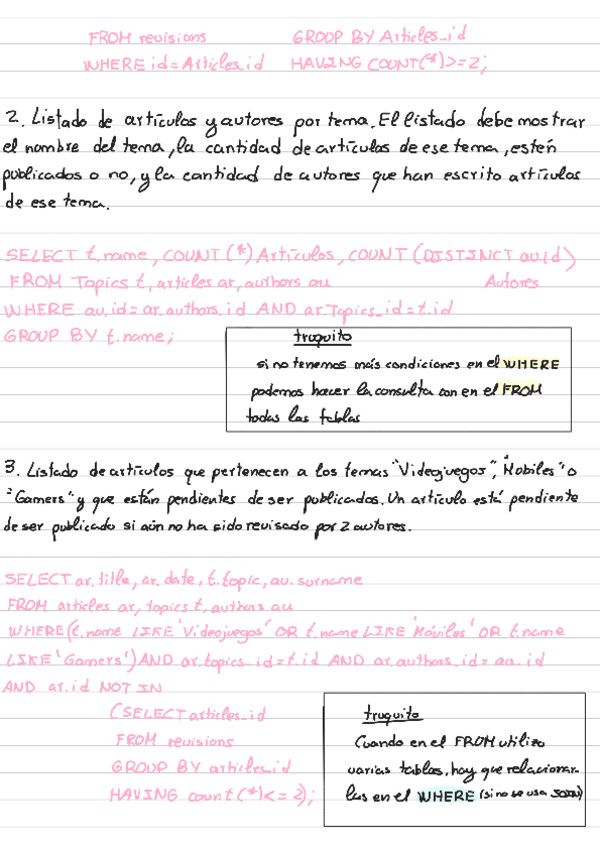 FROM revisions GROUP BY Articles_id
WHERE id=Articles_id HAVING COUNT(*)>=2;
2. Listado de artículos y autores por tema. El listado debe mostrar
el nombre del tema, la cantidad de artículos de ese tema, estén
publicados o no, y la cantidad de autores que han escrito artículos
de ese tema.
SELECT t.name, COUNT(*) Artículos, COUNT (DISTINCT au.id)
FROM Topics t, articles ar, authors au Autores
WHERE au.id=ar.authors_id AND ar.Topics_id=t.id
GROUP BY t.name;
truquito
si no tenemos más condiciones en el WHERE
podemos hacer la consulta con en el FROM
todas las tablas
3. Listado de artículos que pertenecen a los temas "Videojuegos", "Mobiles" o
"Gamers" y que están pendientes de ser publicados. Un artículo está pendiente
de ser publicado si aún no ha sido revisado por 2 autores.
SELECT ar.title, ar.date, t.topic, au.surname
FROM articles ar, topics t, authors au
WHERE (t.name LIKE 'Videojuegos' OR t.name LIKE 'Móviles' OR t.name
LIKE 'Gamers') AND ar.topics_id=t.id AND ar.authors_id=au.id
AND ar.id NOT IN
(SELECT articles_id
FROM revisions
GROUP BY articles_id
HAVING count(*)<=2);
truquito
Cuando en el FROM utilizo
varias tablas, hay que relacionar-
las en el WHERE (si no se usa JOIN)